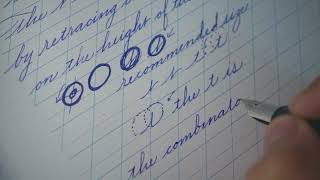 The
by retracing
on the height of
recommended size
t t t t
the t is
the combinato